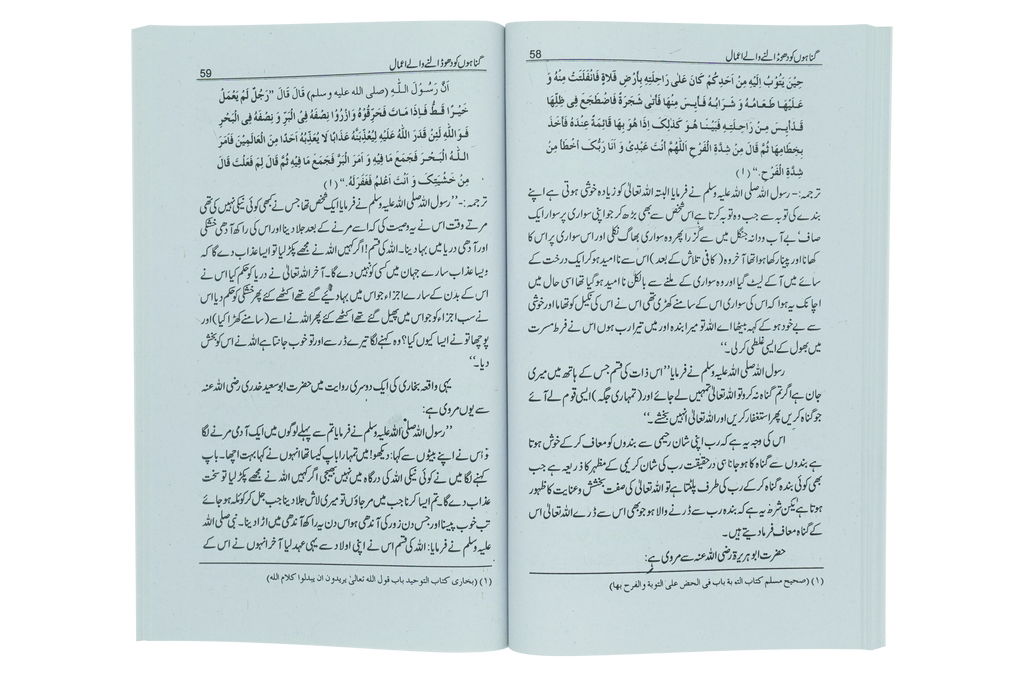 گناہوں کو دھو ڈالنے والے اعمال 58
حِيْنَ يَتُوْبُ اِلَيْهِ مِنْ اَحَدِكُمْ كَانَ عَلٰى رَاحِلَتِهٖ بِاَرْضِ فَلَاةٍ فَانْفَلَتَتْ مِنْهُ وَ
عَلَيْهَا طَعَامُهُ وَ شَرَابُهُ فَاَيِسَ مِنْهَا فَاَتٰى شَجَرَةً فَاضْطَجَعَ فِى ظِلِّهَا
قَدْ اَيِسَ مِنْ رَاحِلَتِهٖ فَبَيْنَا هُوَ كَذٰلِكَ اِذَا هُوَ بِهَا قَائِمَةً عِنْدَهُ فَاَخَذَ
بِخِطَامِهَا ثُمَّ قَالَ مِنْ شِدَّةِ الْفَرْحِ اَللّٰهُمَّ اَنْتَ عَبْدِىْ وَ اَنَا رَبُّكَ اَخْطَأَ مِنْ
شِدَّةِ الْفَرْحِ۔“ (۱)
ترجمہ:- رسول اللہ صلی اللہ علیہ وسلم نے فرمایا البتہ اللہ تعالیٰ کو زیادہ خوشی ہوتی ہے اپنے
بندے کی توبہ سے جب وہ توبہ کرتا ہے اس شخص سے بھی بڑھ کر جو اپنی سواری پر سوار ایک
صاف بے آب ودانہ جنگل میں سے گزرا پھر وہ سواری بھاگ نکلی اور اس سواری پر اس کا
کھانا اور پینا رکھا ہوا تھا آخر وہ (کافی تلاش کے بعد) اس سے نا امید ہو کر ایک درخت کے
سائے میں آ کے لیٹ گیا اور وہ سواری کے ملنے سے بالکل نا امید ہو گیا تھا اسی حال میں
اچانک یہ ہوا کہ اس کی سواری اس کے سامنے کھڑی تھی اس نے اس کی نکیل کو تھاما اور خوشی
سے بے خود ہو کے کہہ بیٹھا اے اللہ تو میرا بندہ اور میں تیرا رب ہوں اس نے فرط مسرت
میں بھول کے ایسی غلطی کر لی۔“
رسول اللہ صلی اللہ علیہ وسلم نے فرمایا ”اس ذات کی قسم جس کے ہاتھ میں میری
جان ہے اگر تم گناہ نہ کرو تو اللہ تعالیٰ تمہیں لے جائے اور (تمہاری جگہ) ایسی قوم لے آئے
جو گناہ کریں پھر استغفار کریں اور اللہ تعالیٰ انہیں بخشے۔“
اس کی وجہ یہ ہے کہ رب اپنی شان رحیمی سے بندوں کو معاف کر کے خوش ہوتا
ہے بندوں سے گناہ کا ہو جانا ہی درحقیقت رب کی شان کریمی کے مظہر کا ذریعہ ہے جب
بھی کوئی بندہ گناہ کر کے رب کی طرف پلٹتا ہے تو اللہ تعالیٰ کی صفت بخشش و عنایت کا ظہور
ہوتا ہے لیکن شرط یہ ہے کہ بندہ رب سے ڈرنے والا ہو جو بھی اس سے ڈرے اللہ تعالیٰ اس
کے گناہ معاف فرما دیتے ہیں۔
حضرت ابو ہریرۃ رضی اللہ عنہ سے مروی ہے:
(۱) (صحیح مسلم کتاب التوبة باب فی الحض علی التوبة والفرح بها)
گناہوں کو دھو ڈالنے والے اعمال 59
اَنَّ رَسُوْلَ اللّٰهِ (صلی الله عليه وسلم) قَالَ قَالَ ”رَجُلٌ لَمْ يَعْمَلْ
خَيْرًا قَطُّ فَاِذَا مَاتَ فَحَرِّقُوْهُ وَاذْرُوْا نِصْفَهُ فِى الْبَرِّ وَ نِصْفَهُ فِى الْبَحْرِ
فَوَاللّٰهِ لَئِنْ قَدَرَ اللّٰهُ عَلَيْهِ لَيُعَذِّبَنَّهُ عَذَابًا لَا يُعَذِّبُهُ اَحَدًا مِنَ الْعَالَمِيْنَ فَاَمَرَ
اللّٰهُ الْبَحْرَ فَجَمَعَ مَا فِيْهِ وَ اَمَرَ الْبَرَّ فَجَمَعَ مَا فِيْهِ ثُمَّ قَالَ لِمَ فَعَلْتَ قَالَ
مِنْ خَشْيَتِكَ وَ اَنْتَ اَعْلَمُ فَغَفَرَ لَهُ۔“ (۱)
ترجمہ:-”رسول اللہ صلی اللہ علیہ وسلم نے فرمایا ایک شخص تھا جس نے کبھی کوئی نیکی نہیں کی تھی
مرتے وقت اس نے یہ وصیت کی کہ اسے مرنے کے بعد جلا دینا اور اس کی راکھ آدھی خشکی
اور آدھی دریا میں بہا دینا۔ اللہ کی قسم! اگر کہیں اللہ نے مجھے پکڑ لیا تو ایسا عذاب دے گا کہ
ویسا عذاب سارے جہان میں کسی کو نہیں دے گا۔ آخر اللہ تعالیٰ نے دریا کو حکم کیا اس نے
اس کے بدن کے سارے اجزاء جو اس میں بہا دیئے گئے تھے اکٹھے کئے پھر خشکی کو حکم دیا اس
نے سب اجزاء کو جو اس میں پھیل گئے تھے اکٹھے کئے پھر اللہ نے اسے (سامنے کھڑا کیا) اور
پوچھا تو نے ایسا کیوں کیا؟ وہ کہنے لگا تیرے ڈر سے اور تو خوب جانتا ہے اللہ نے اس کو بخش
دیا۔“
یہی واقعہ بخاری کی ایک دوسری روایت میں حضرت ابو سعید خدری رضی اللہ عنہ
سے یوں مروی ہے:
”رسول اللہ صلی اللہ علیہ وسلم نے فرمایا تم سے پہلے لوگوں میں ایک آدمی مرنے لگا
تو اس نے اپنے بیٹوں سے کہا: دیکھو! میں تمہارا باپ کیسا تھا انہوں نے کہا بہت اچھا۔ باپ
کہنے لگا میں نے کوئی نیکی اللہ کی درگاہ میں نہیں بھیجی اگر کہیں اللہ نے مجھے پکڑ لیا تو سخت
عذاب دے گا۔ تم ایسا کرنا جب میں مر جاؤں تو میری لاش جلا دینا جب جل کر کوئلہ ہو جائے
تب خوب پیسنا اور جس دن زور کی آندھی ہو اس دن یہ راکھ آندھی میں اڑا دینا۔ نبی صلی اللہ
علیہ وسلم نے فرمایا: اللہ کی قسم اس نے اپنی اولاد سے یہی عہد لیا آخر انہوں نے اس کے
(۱) (بخاری کتاب التوحید باب قول الله تعالیٰ یریدون ان یبدلوا کلام الله)